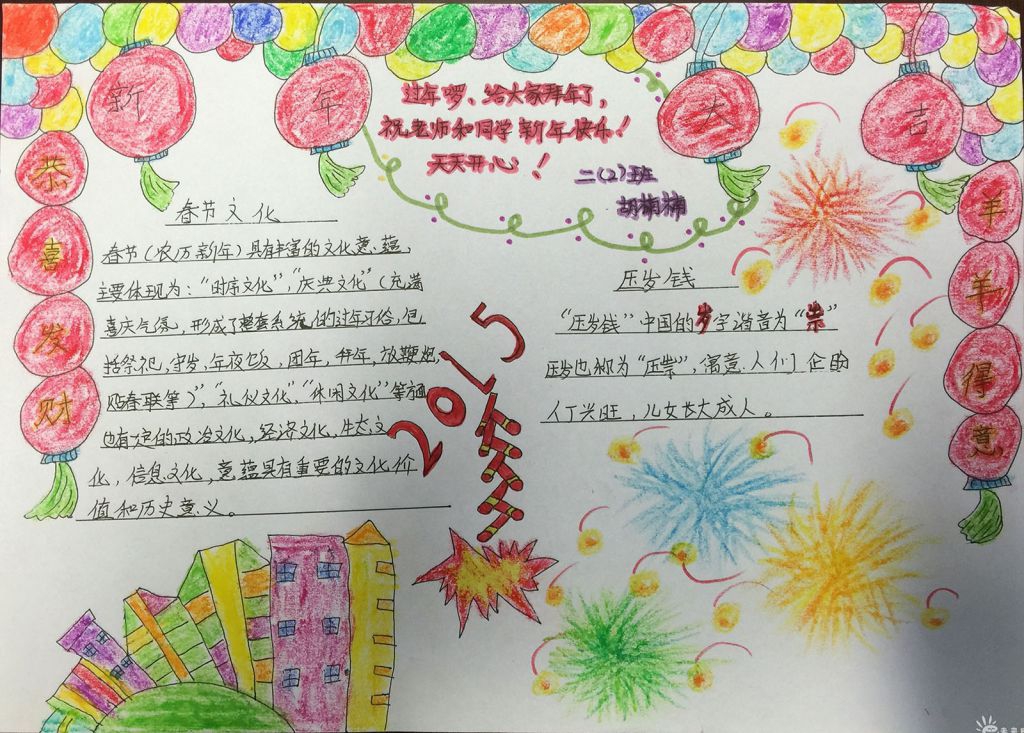 新年大吉
过年啰、给大家拜年了，
祝老师和同学新年快乐！
天天开心！
二(2)班
胡楠楠
恭喜发财
春节文化
春节（农历新年）具有丰富的文化意蕴，
主要体现为：“时序文化”，“庆典文化”（充满
喜庆气氛，形成了整套系统的过年习俗，包
括祭祀，守岁，年夜饭，团年，拜年，放鞭炮，
贴春联等）”，“礼仪文化”，“休闲文化”等方面
也有一定的政治文化，经济文化，生态文
化，信息文化，意蕴具有重要的文化价
值和历史意义。
2015
压岁钱
“压岁钱”中国的岁字谐音为“祟”
压岁也称为“压祟”，寓意人们企盼
人丁兴旺，儿女长大成人。
羊羊得意